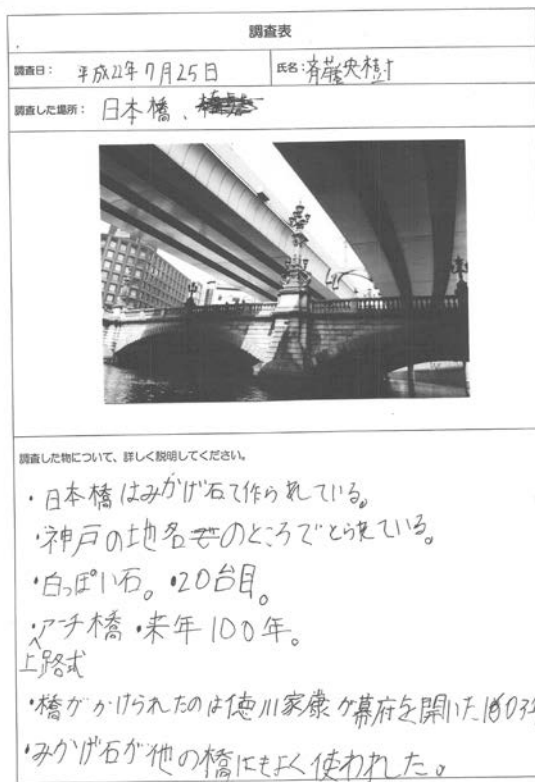 調査表
調査日： 平成22年7月25日 氏名：斉藤央樹
調査した場所： 日本橋、
調査した物について、詳しく説明してください。
・日本橋はみかげ石で作られている。
・神戸の地名のところでとられている。
・白っぽい石。・20台目。
・アーチ橋・来年100年。
上路式
・橋がかけられたのは徳川家康が幕府を開いた1603年
・みかげ石が他の橋にもよく使われた。